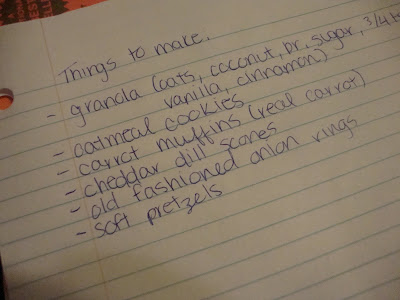 Things to make.
- granola (oats, coconut, br. sugar, 3/4 ts
vanilla, cinnamon)
- oatmeal cookies
- carrot muffins (real carrot)
- cheddar dill scones
- old fashioned onion rings
- soft pretzels